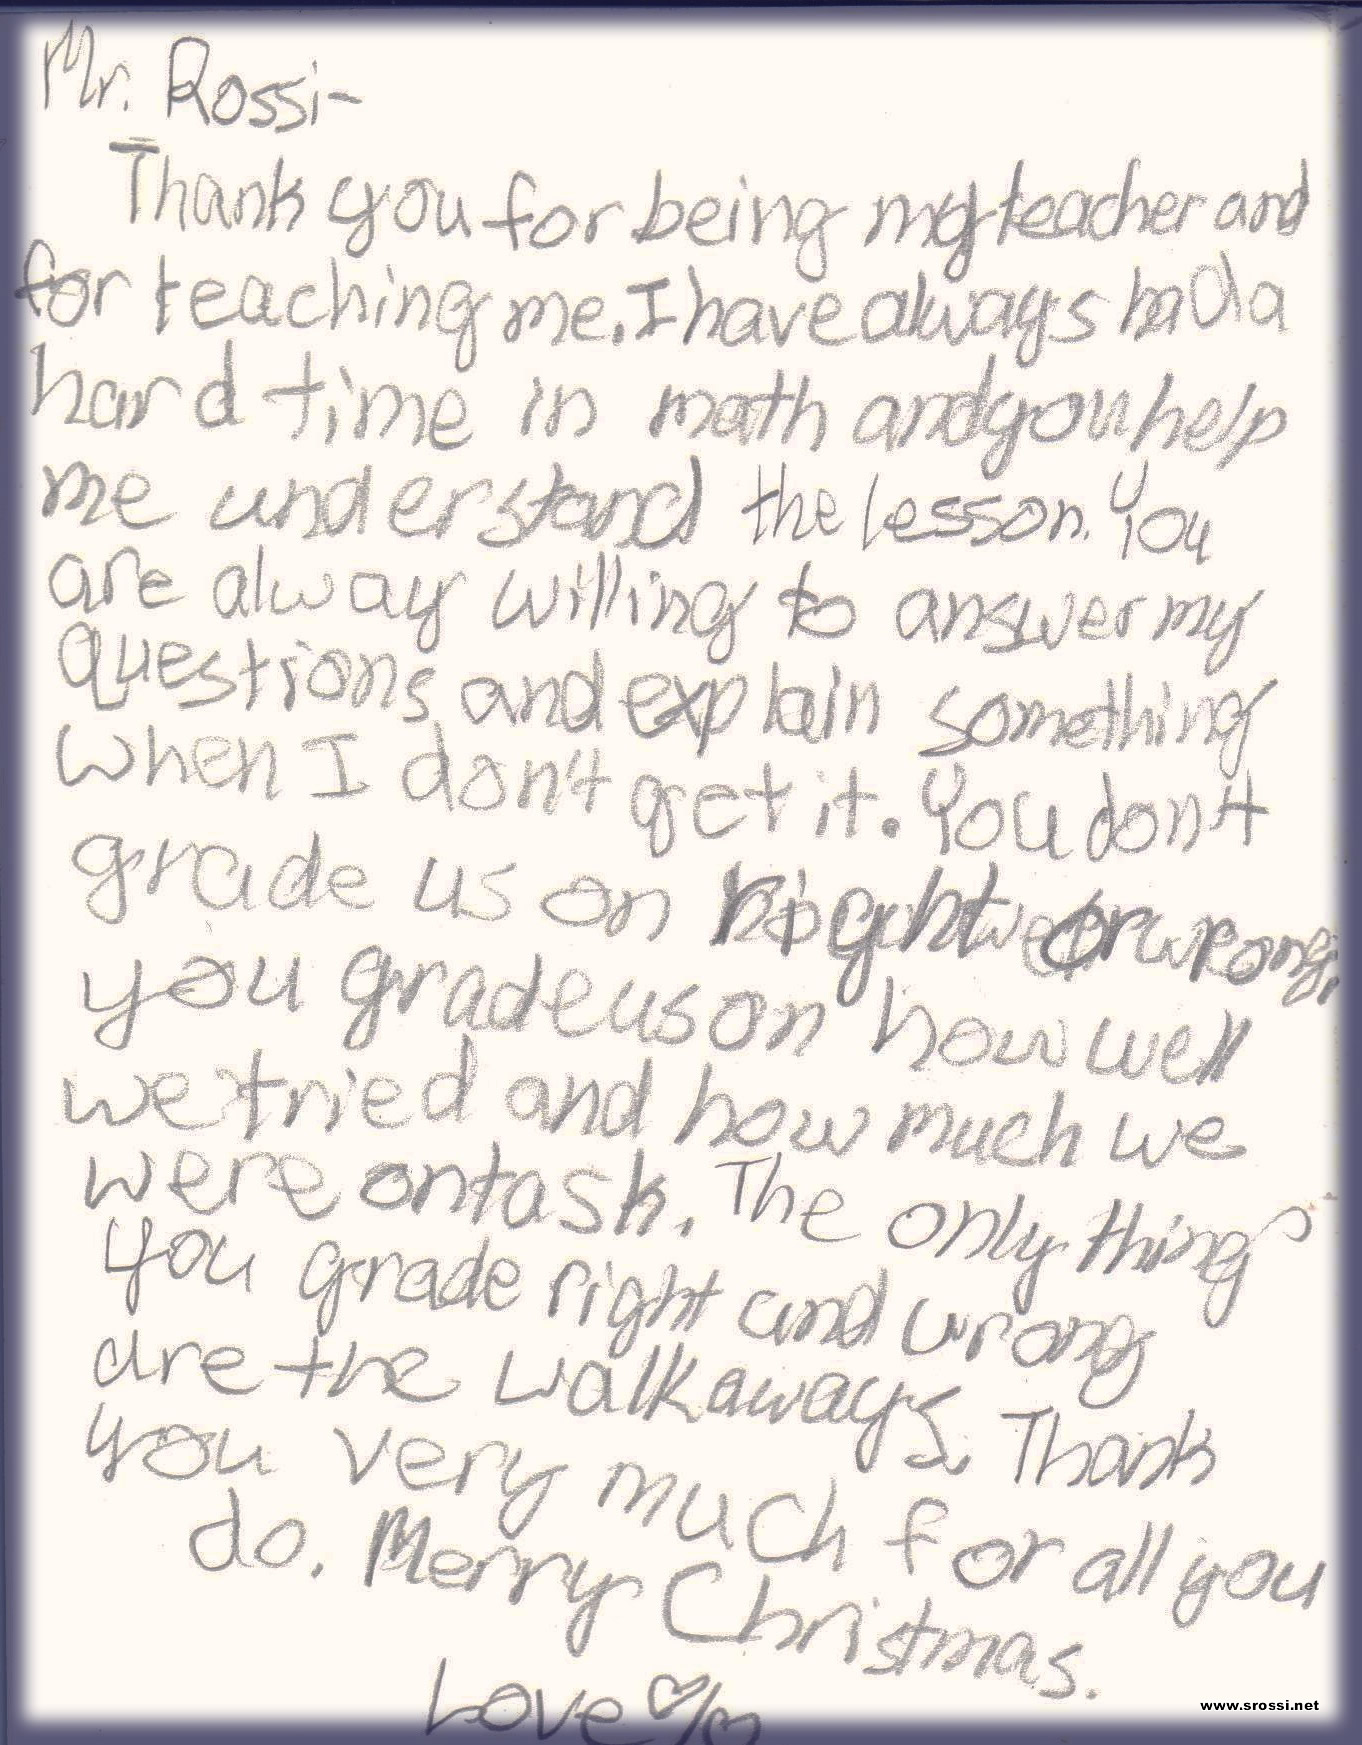 Mr. Rossi-
Thank you for being my teacher and
for teaching me. I have always had a
hard time in math and you help
me understand the lesson. You
are alway willing to answer my
questions and explain something
when I don't get it. You don't
grade us on right or wrong,
you grade us on how well
we tried and how much we
were on task. The only things
you grade right and wrong
are the walkaways. Thank
you very much for all you
do. Merry Christmas.
Love
www.srossi.net